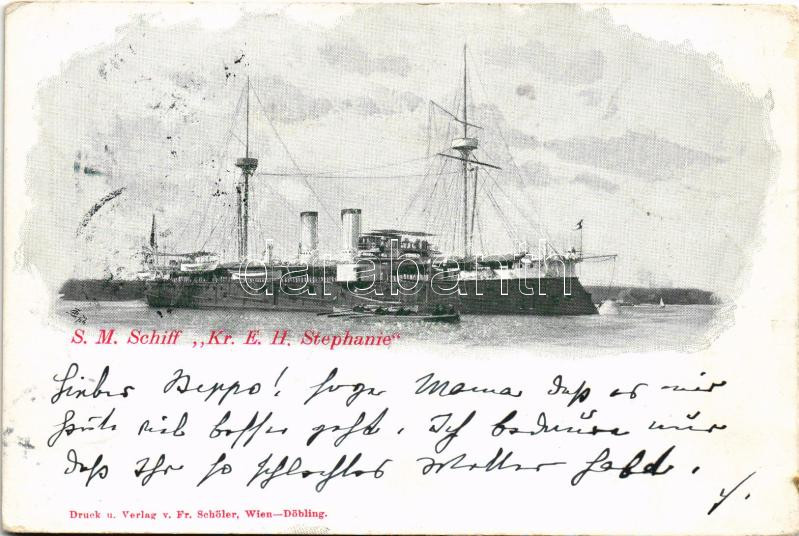 S. M. Schiff „Kr. E. H. Stephanie“
Lieber Beppo! sage Mama daß es mir
heute viel besser geht. Ich bedaure nur
daß Ihr so schlechtes Wetter habt.
Druck u. Verlag v. Fr. Schöler, Wien—Döbling.
darabanth